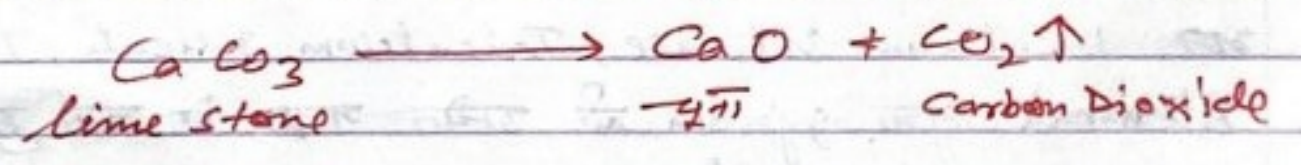 CaCO₃ ⟶ CaO + CO₂ ↑
lime stone चूना Carbon Dioxide